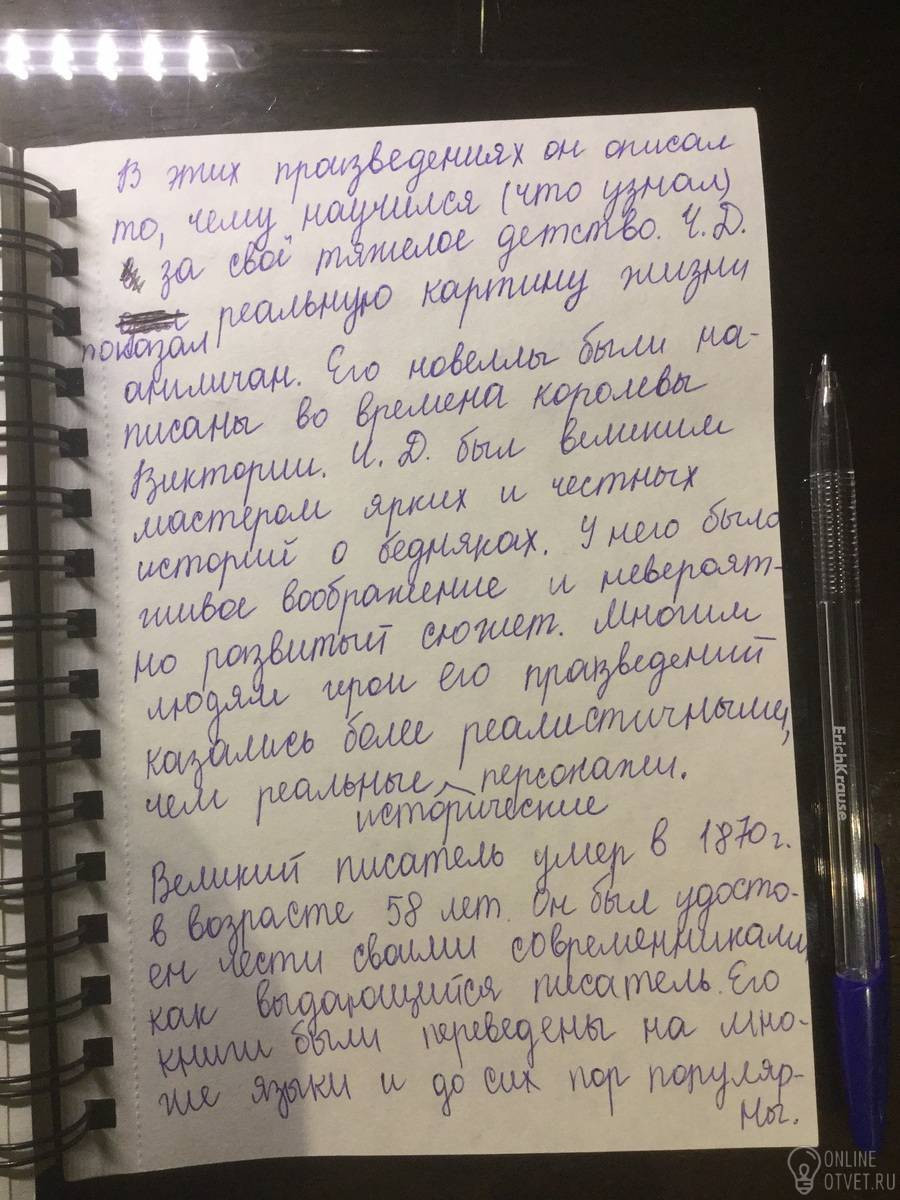 В этих произведениях он описал
то, чему научился (что узнал)
за своё тяжелое детство. Ч.Д.
показал реальную картину жизни
англичан. Его новеллы были на-
писаны во времена королевы
Виктории. Ч.Д. был великим
мастером ярких и честных
историй о бедняках. У него было
живое воображение и невероят-
но развитый сюжет. Многим
людям герои его произведений
казались более реалистичными,
чем реальные персонажи.
исторические
Великий писатель умер в 1870г.
в возрасте 58 лет. Он был удосто-
ен чести своими современниками,
как выдающийся писатель. Его
книги были переведены на мно-
гие языки и до сих пор популяр-
ны.
ErichKrause
ONLINE
OTVET.RU